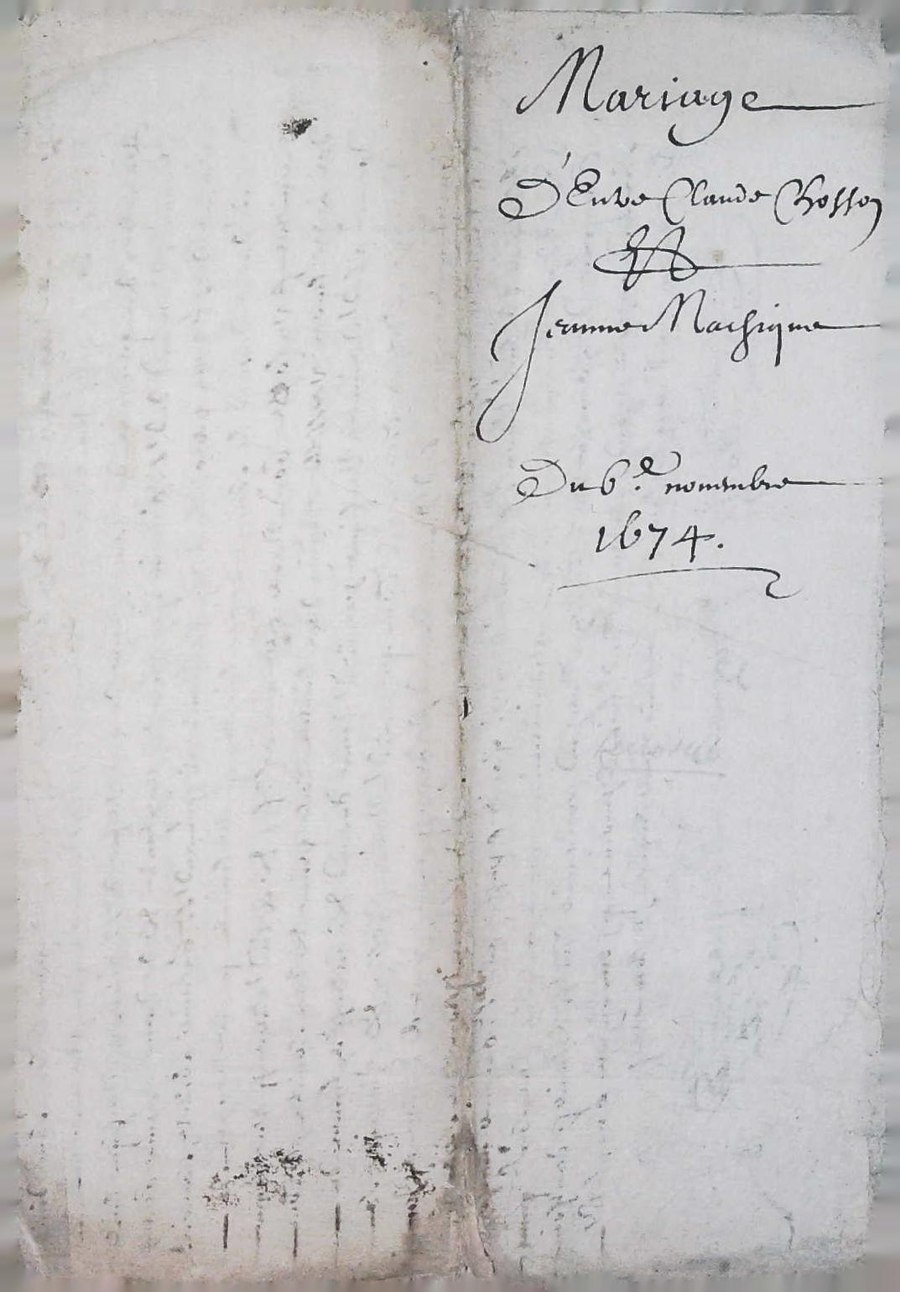 Mariage
D'Entre Claude Bosson
Et
Jeanne Machique
Du 6.e novembre
1674.